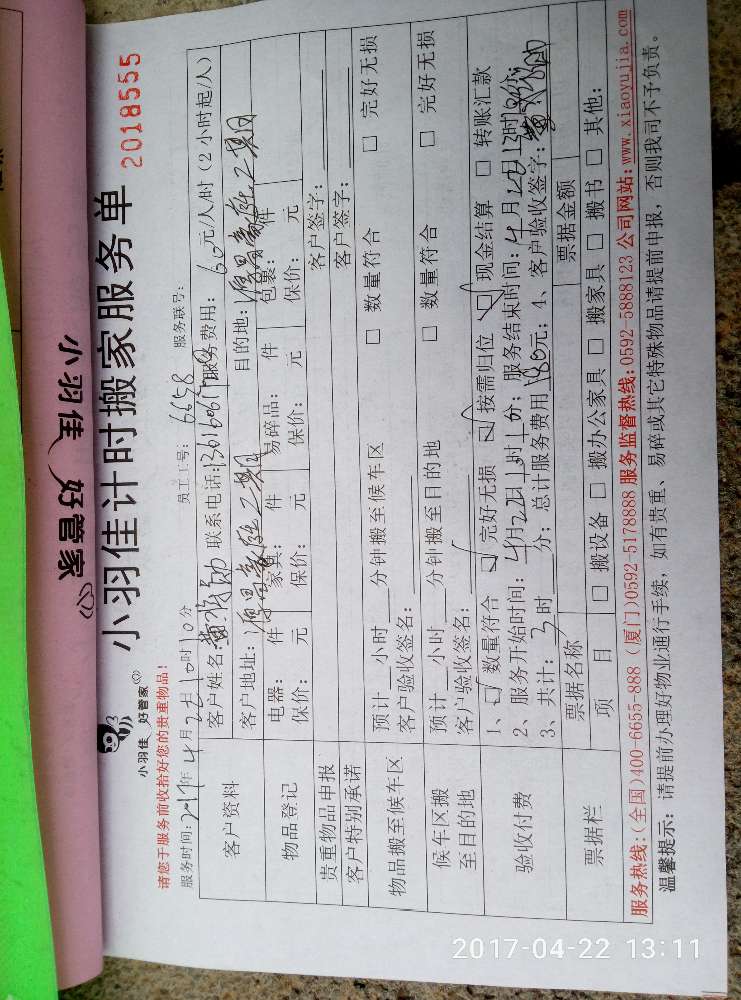 小羽佳 好管家
小羽佳 好管家
小羽佳计时搬家服务单
2018555
请您于服务前收拾好您的贵重物品!
服务时间:2017年4月22日10时10分 员工工号:6658 服务联号:
客户资料
客户姓名: 联系电话: 服务费用:60元/人/时(2小时起/人)
客户地址: 目的地:
物品登记
电器: 件 家具: 件 易碎品: 件 包裹: 件
保价: 元 保价: 元 保价: 元 保价: 元
贵重物品申报 客户签字:
客户特别承诺 客户签字:
物品搬至候车区
预计 小时 分钟搬至候车区 □ 数量符合 □ 完好无损
客户验收签名:
候车区搬至目的地
预计 小时 分钟搬至目的地 □ 数量符合 □ 完好无损
客户验收签名:
验收付费
1、☑ 数量符合 ☑ 完好无损 ☑ 按需归位 ☑ 现金结算 □ 转账汇款
2、服务开始时间:4月22日 时 分;服务结束时间:4月22日13时 分;
3、共计:3时 分;总计服务费用180元;4、客户验收签字:
票据栏
票据名称 票据金额
项目 □ 搬设备 □ 搬办公家具 □ 搬家具 □ 搬书 □ 其他:
服务热线:(全国)400-6655-888 (厦门)0592-5178888 服务监督热线:0592 5888123 公司网站:www.xiaoyujia.com
温馨提示: 请提前办理好物业通行手续,如有贵重、易碎或其它特殊物品请提前申报,否则我司不予负责。
2017-04-22 13:11